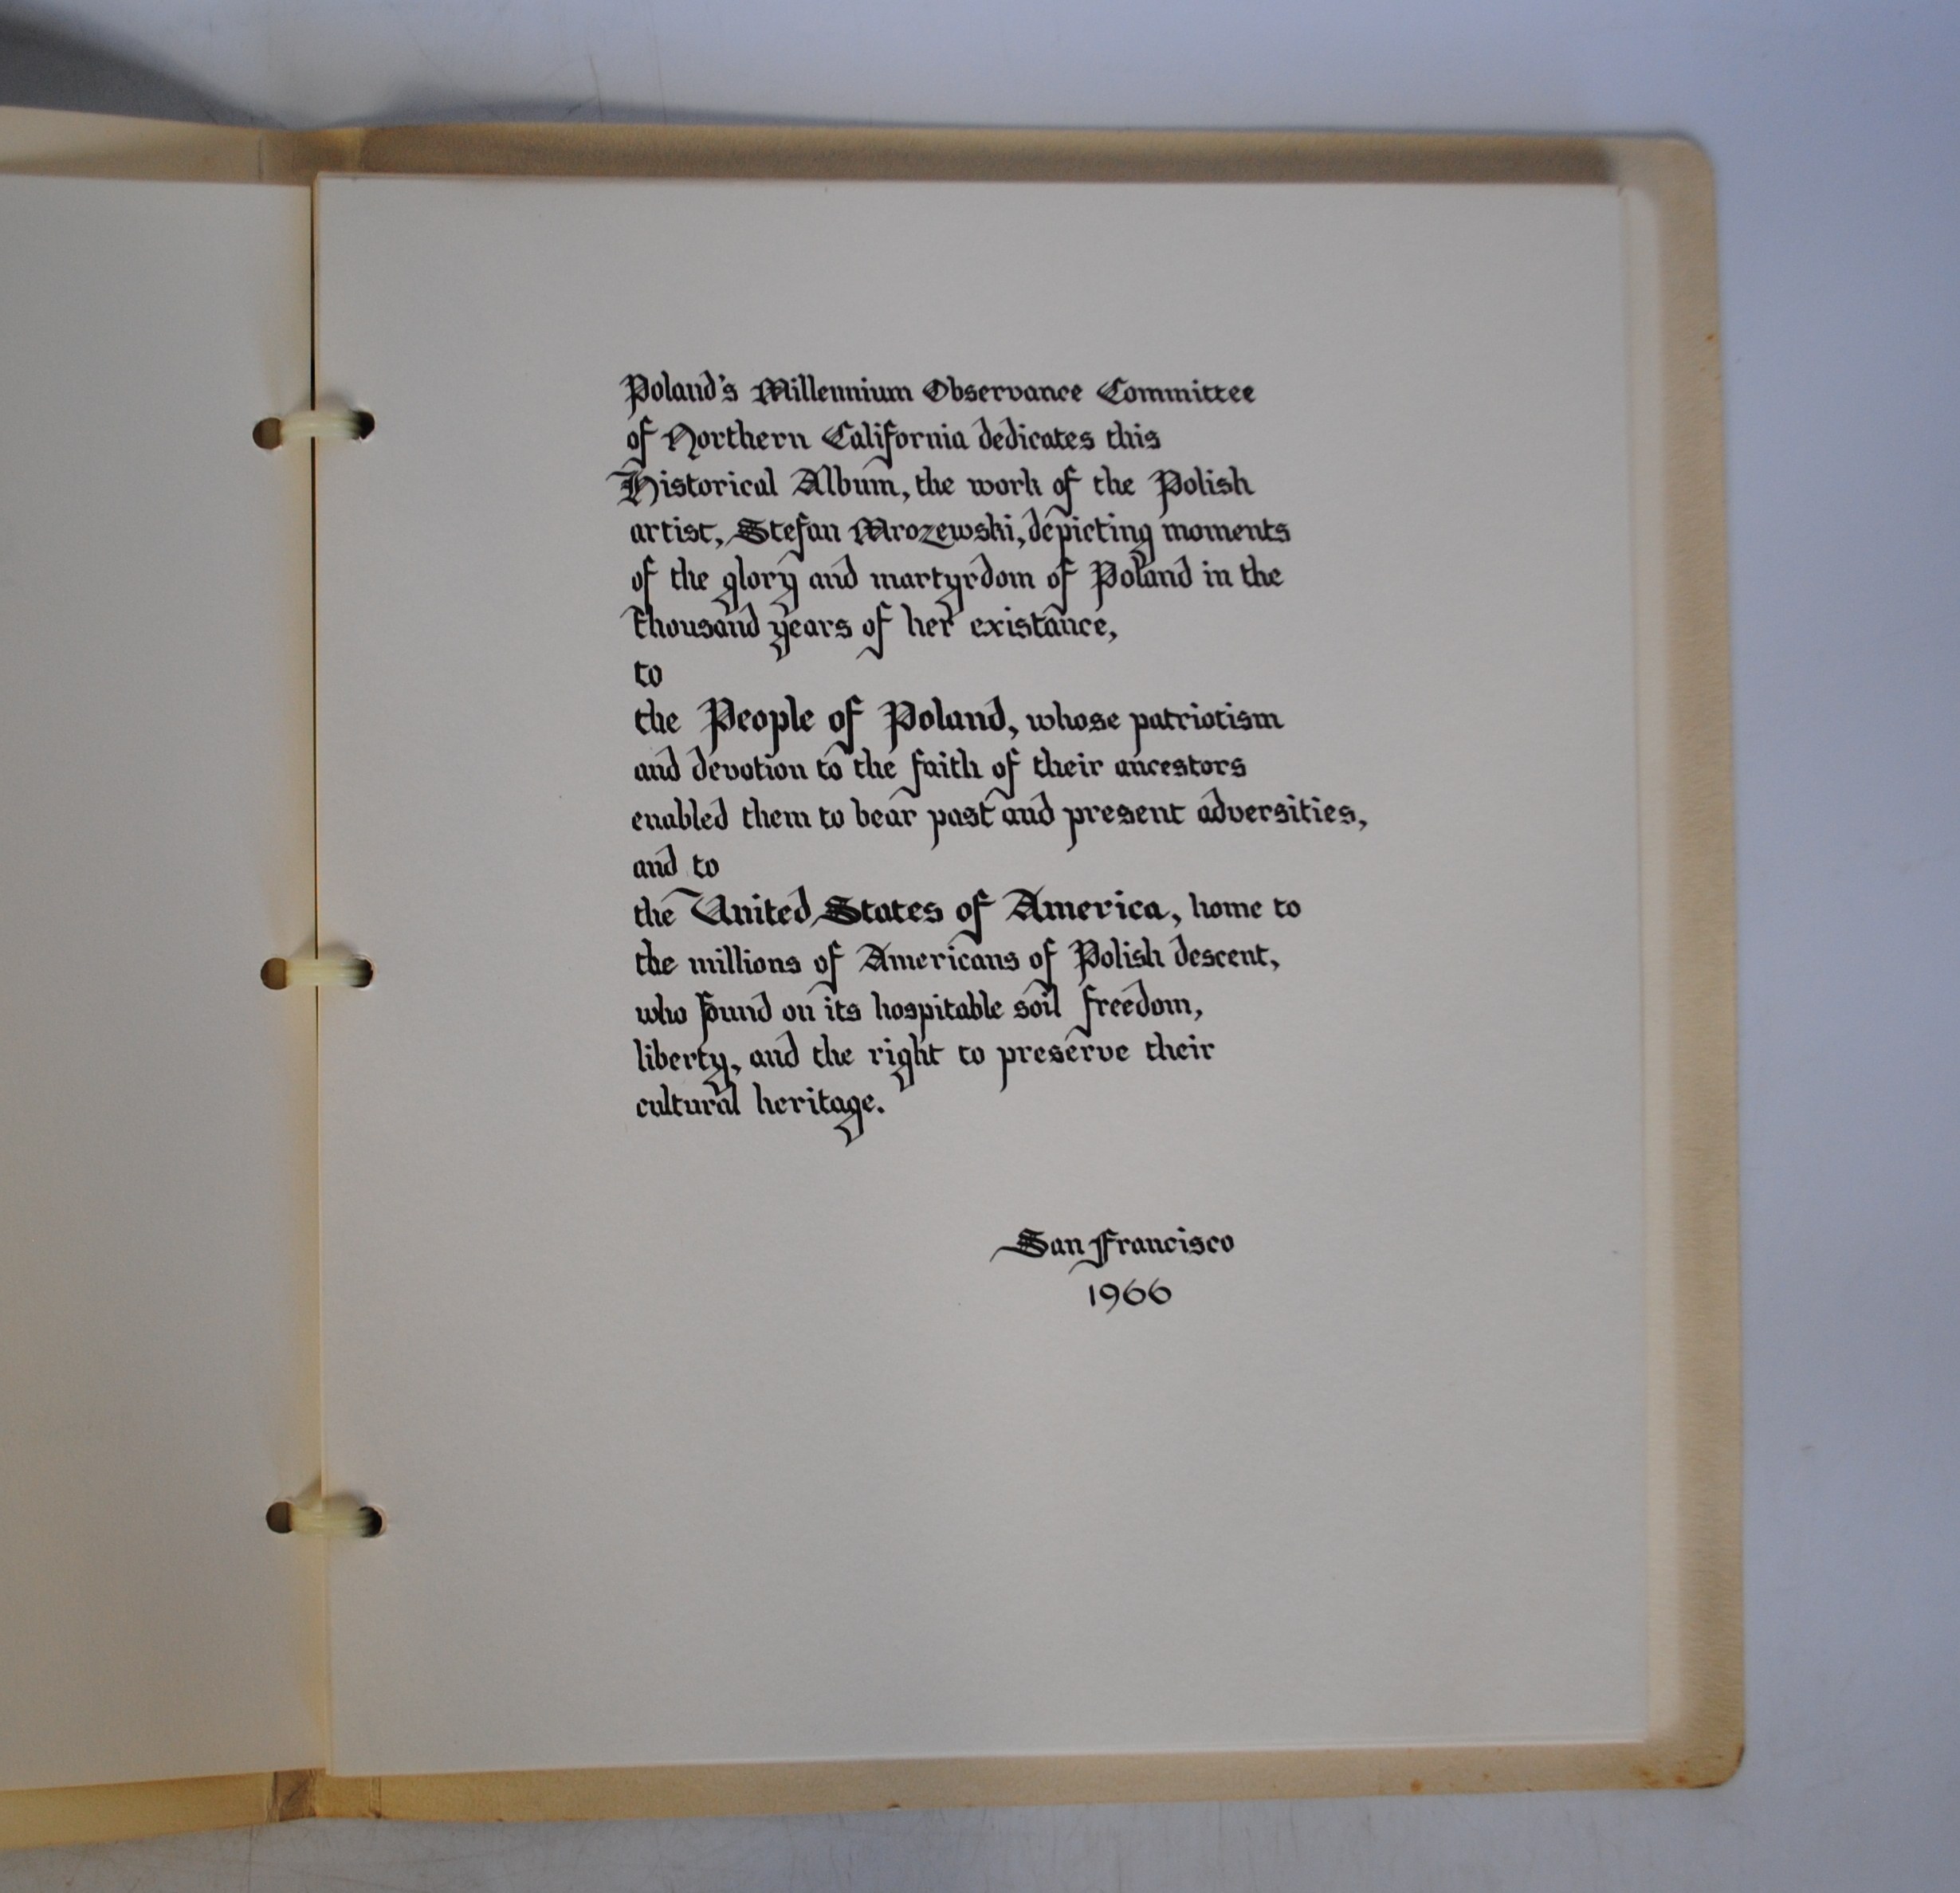 Poland's Millennium Observance Committee
of Northern California dedicates this
Historical Album, the work of the Polish
artist, Stefan Mrozewski, depicting moments
of the glory and martyrdom of Poland in the
thousand years of her existance,
to
the People of Poland, whose patriotism
and devotion to the faith of their ancestors
enabled them to bear past and present adversities,
and to
the United States of America, home to
the millions of Americans of Polish descent,
who found on its hospitable soil freedom,
liberty, and the right to preserve their
cultural heritage.
San Francisco
1966